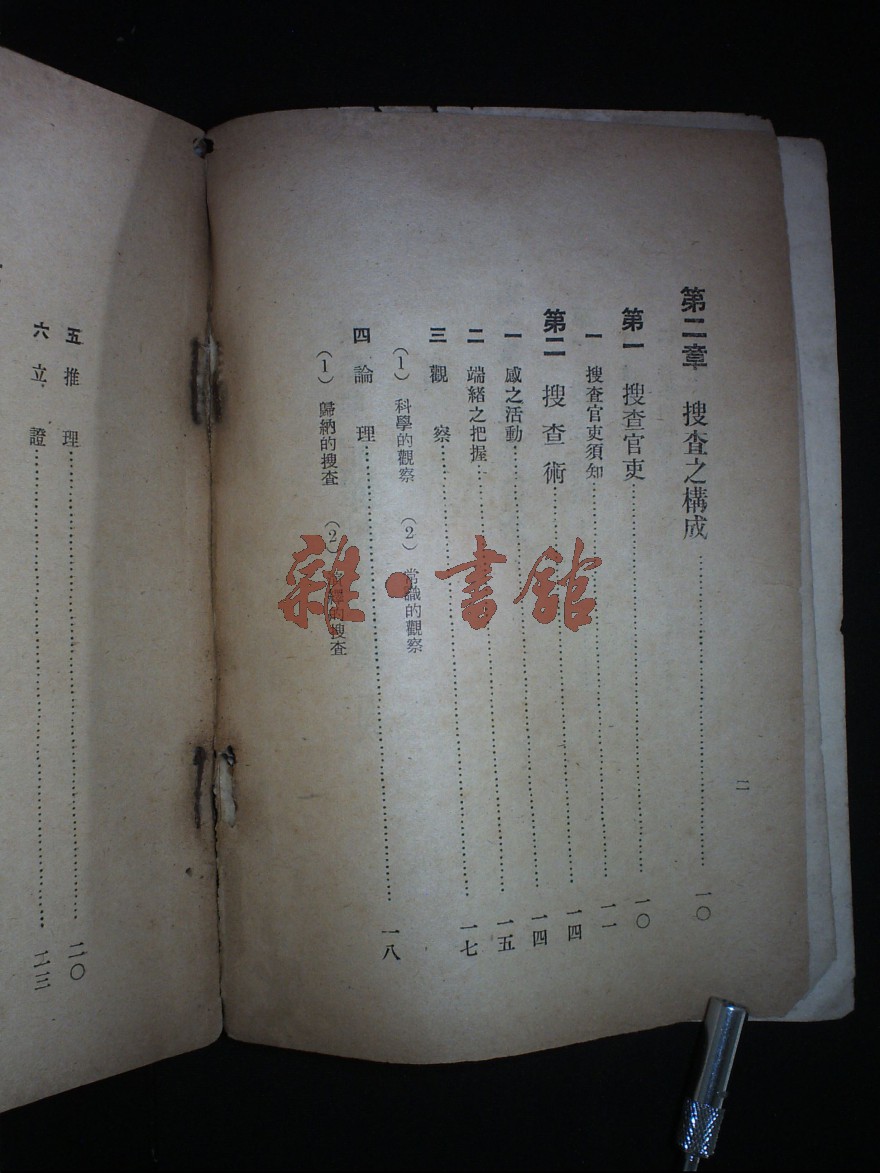 第二章 搜查之構成……一〇
第一 搜查官吏……一〇
一 搜查官吏須知……一一
第二 搜查術……一四
一 感之活動……一四
二 端緒之把握……一五
三 觀察……一七
(1) 科學的觀察 (2) 常識的觀察
四 論理……一八
(1) 歸納的搜查 (2) 的搜查
二
五 推理……二〇
六 立證……二三
雜·書館